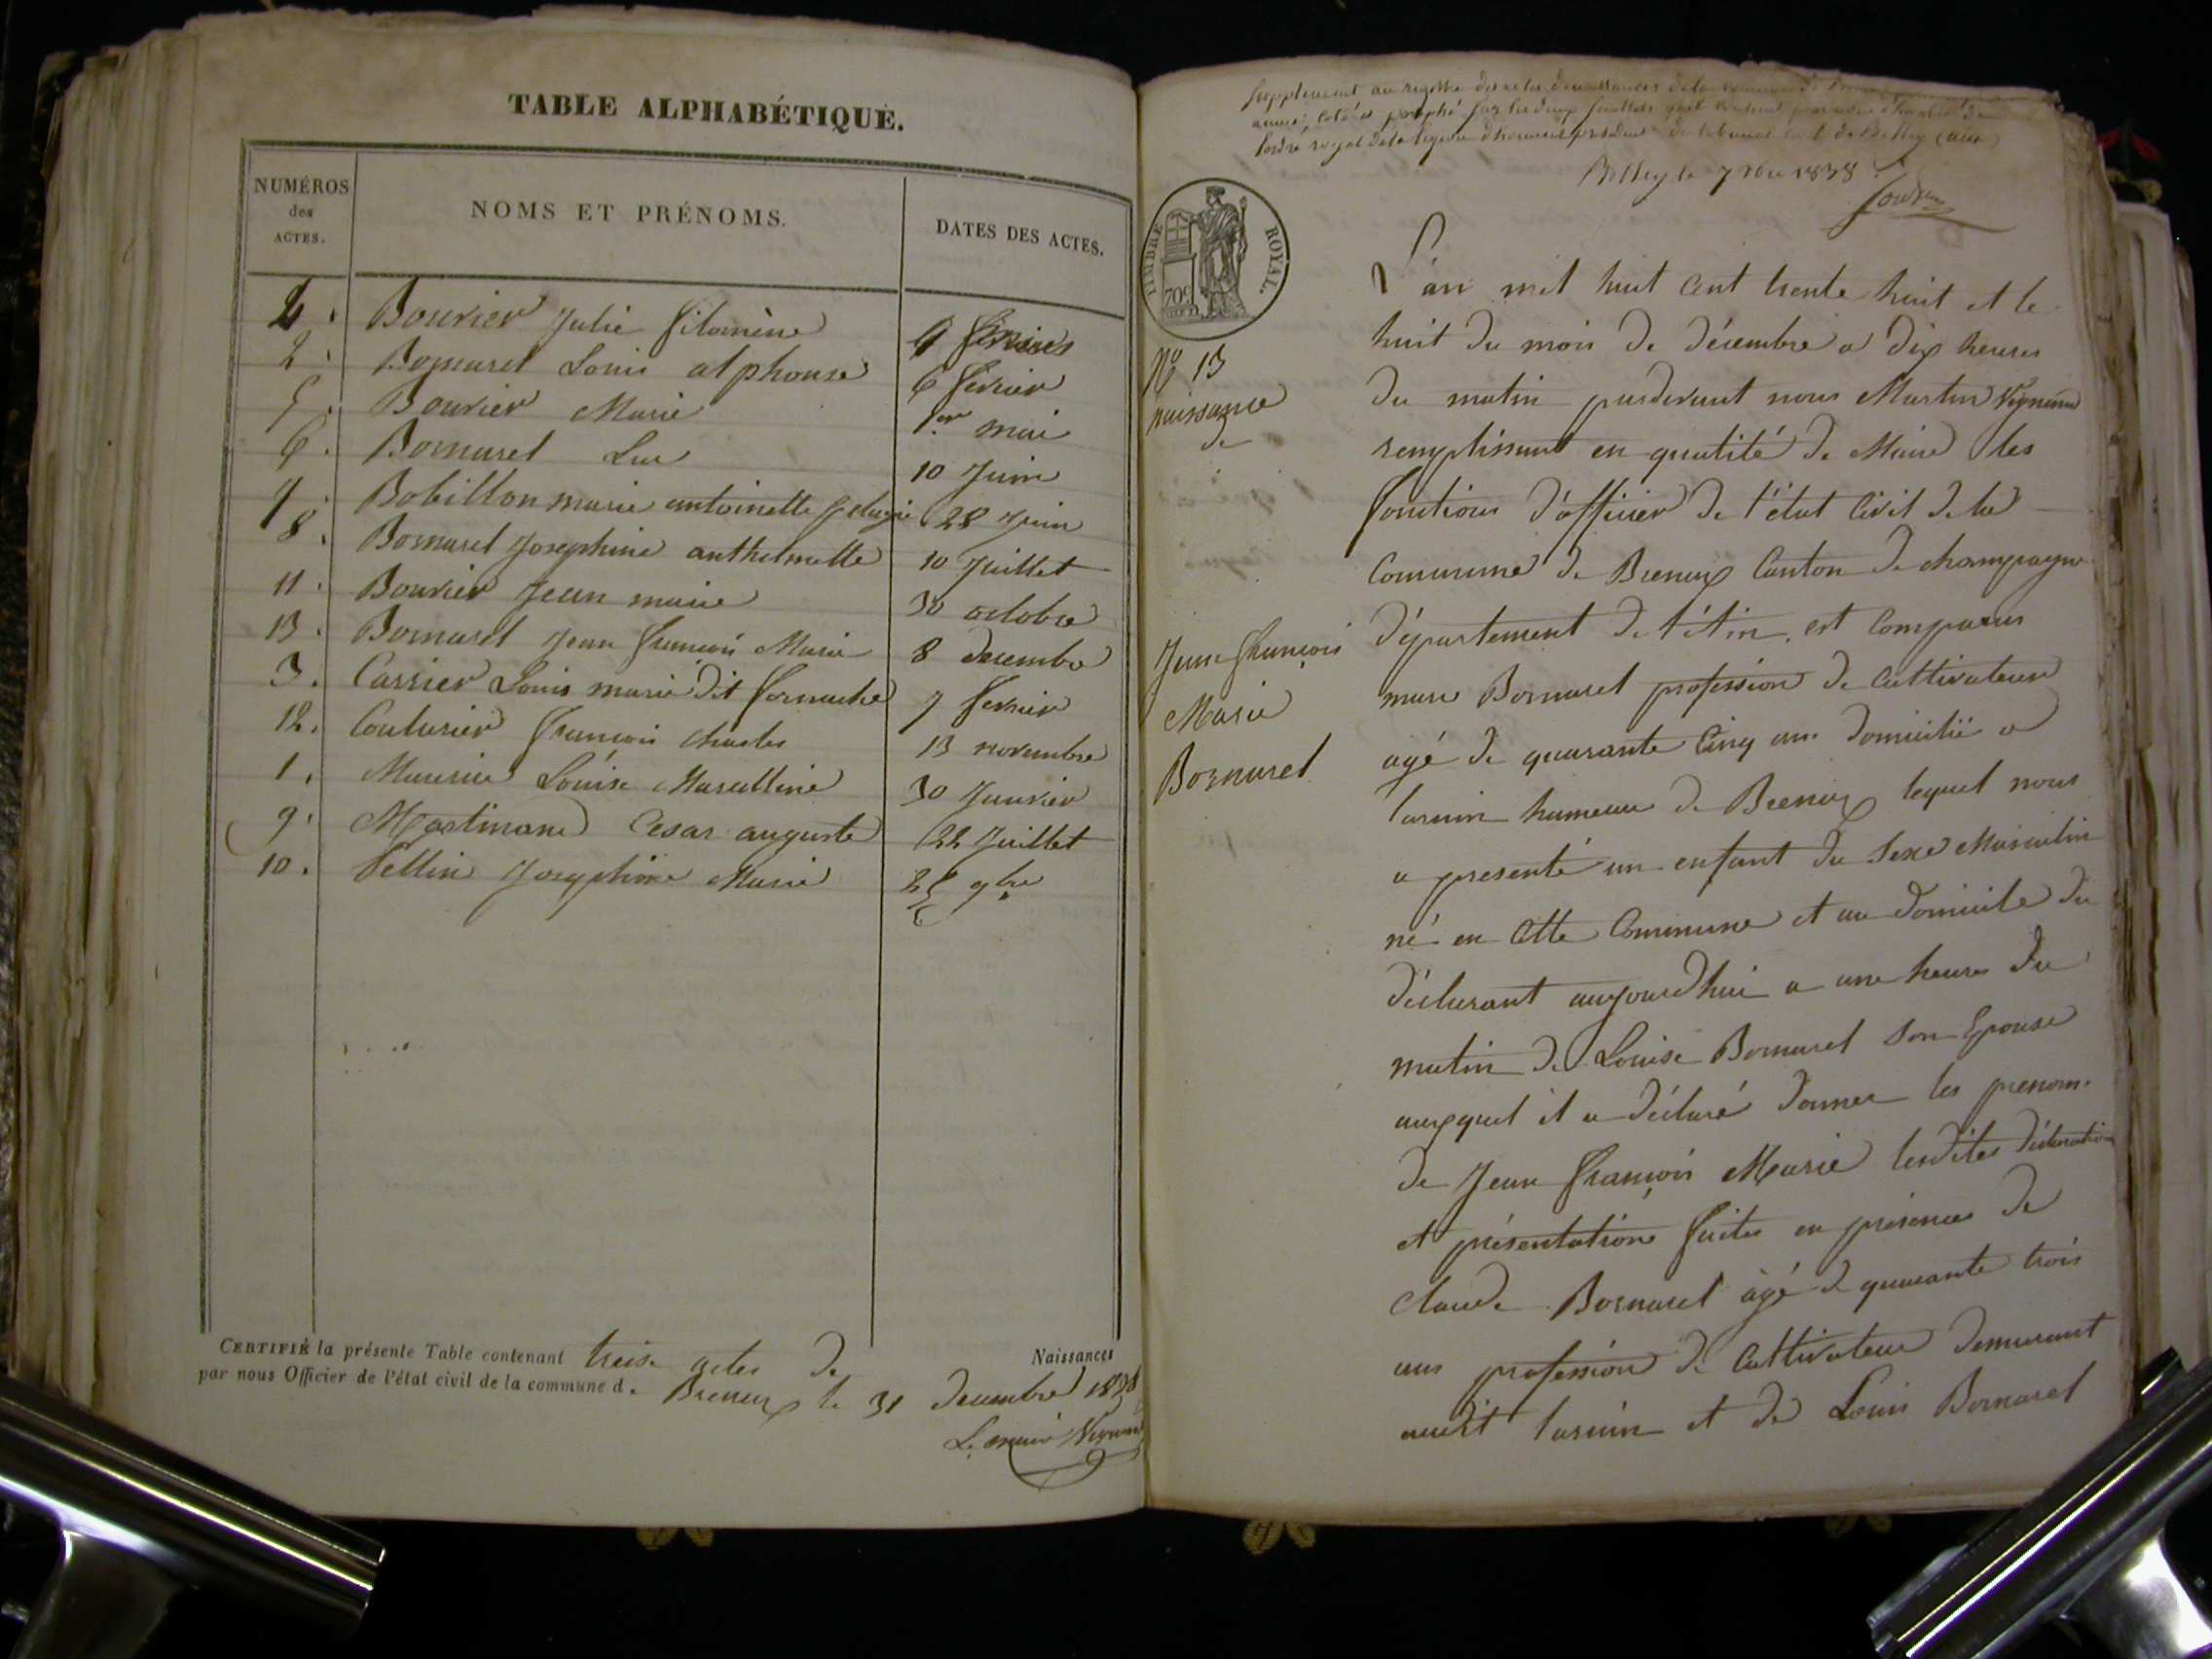 TABLE ALPHABÉTIQUE.
NUMÉROS
des
ACTES.
NOMS ET PRÉNOMS.
DATES DES ACTES.
4. Bouvier Julie filomène 9 fevrier
2. Bornarel Louis alphonse 6 fevrier
5. Bouvier Marie 1er mai
6. Bornarel Luc 10 Juin
7. Bobillon marie antoinette pelagie 28 Juin
8. Bornarel Josephine anthelmette 10 Juillet
11. Bouvier Jean marie 30 octobre
13. Bornarel Jean françois Marie 8 decembre
3. Carrier Louis marie dit 7 fevrier
12. Couturier françois charles 13 novembre
1. Maurier Louise Marcelline 30 Janvier
9. Martinand Cesar auguste 22 Juillet
10. Vellin Josephine Marie 25 9bre
CERTIFIÉ la présente Table contenant treize actes de Naissances
par nous Officier de l'état civil de la commune d. Brenaz le 31 decembre 1838
Le maire
supplement au registre des actes de naissances de la commune de
année, cotés et paraphé
l'ordre royal de la legion d'honneur président du tribunal civil de Belley (ain)
Belley le 7 Xbre 1838
TIMBRE ROYAL.
70c
L'an mil huit cent trente huit et le
huit du mois de décembre a dix heures
du matin pardevant nous Martin
remplissant en qualité de Maire les
fonctions d'officier de l'état civil de la
Commune de Brenaz Canton de champagne
département de l'Ain, est comparus
marc Bornarel profession de cultivateur
agé de quarante cinq ans domicilié a
hameau de Brenaz lequel nous
a presenté un enfant du sexe Masculin
né en cette commune et au domicile du
déclarant aujourdhui a une heure du
matin de Louise Bornarel son Epouse
auxquel il a déclaré donner les prenoms
de Jean françois Marie lesdites déclaration
et présentation faites en présence de
Claude Bornarel âgé de quarante trois
ans profession de cultivateur demeurant
audit et de Louis Bornarel
No 13
naissance
de
Jean françois
Marie
Bornarel